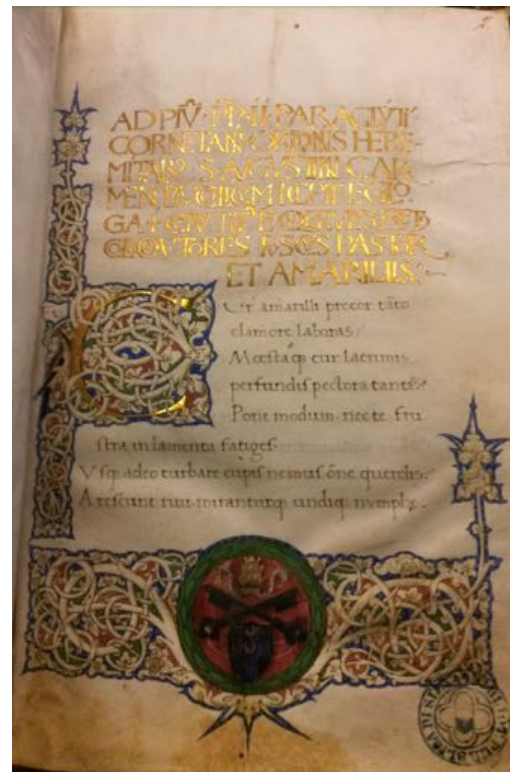 AD PIV̄· PP· II· PARACLYTI
CORNETANI ORDINIS HERE-
MITARV̄ S· AVGVSTINI CAR
MEN BVCOLICVM INCIPIT EGLO
GA
COLLOCVTORES FVSCVS PASTOR
ET AMARILLIS·
Vr amarilli precor tāto
clamore laboras·
Mœstaq cur lacrimis
perfundis pectora tantis?
Pone modum· nec te fru
stra in lamenta fatiges·
Vsq adeo turbare cupis nemus ōne querelis·
Arescunt riui· miranturq undiq nymphę·